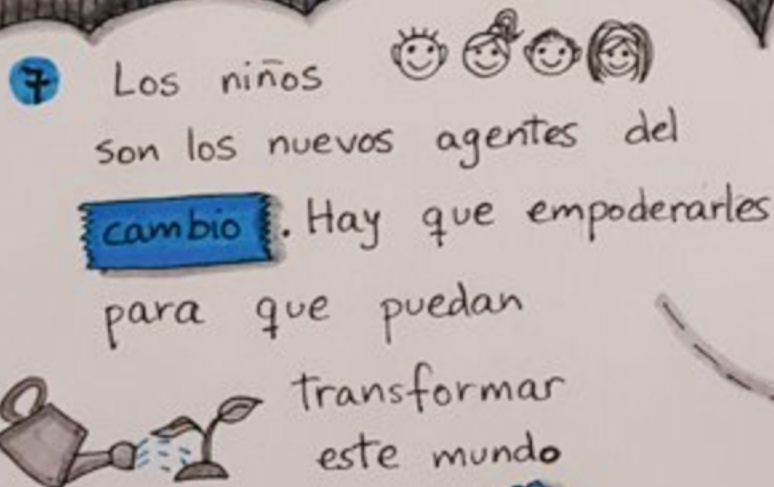 7 Los niños
son los nuevos agentes del
cambio. Hay que empoderarles
para que puedan
transformar
este mundo